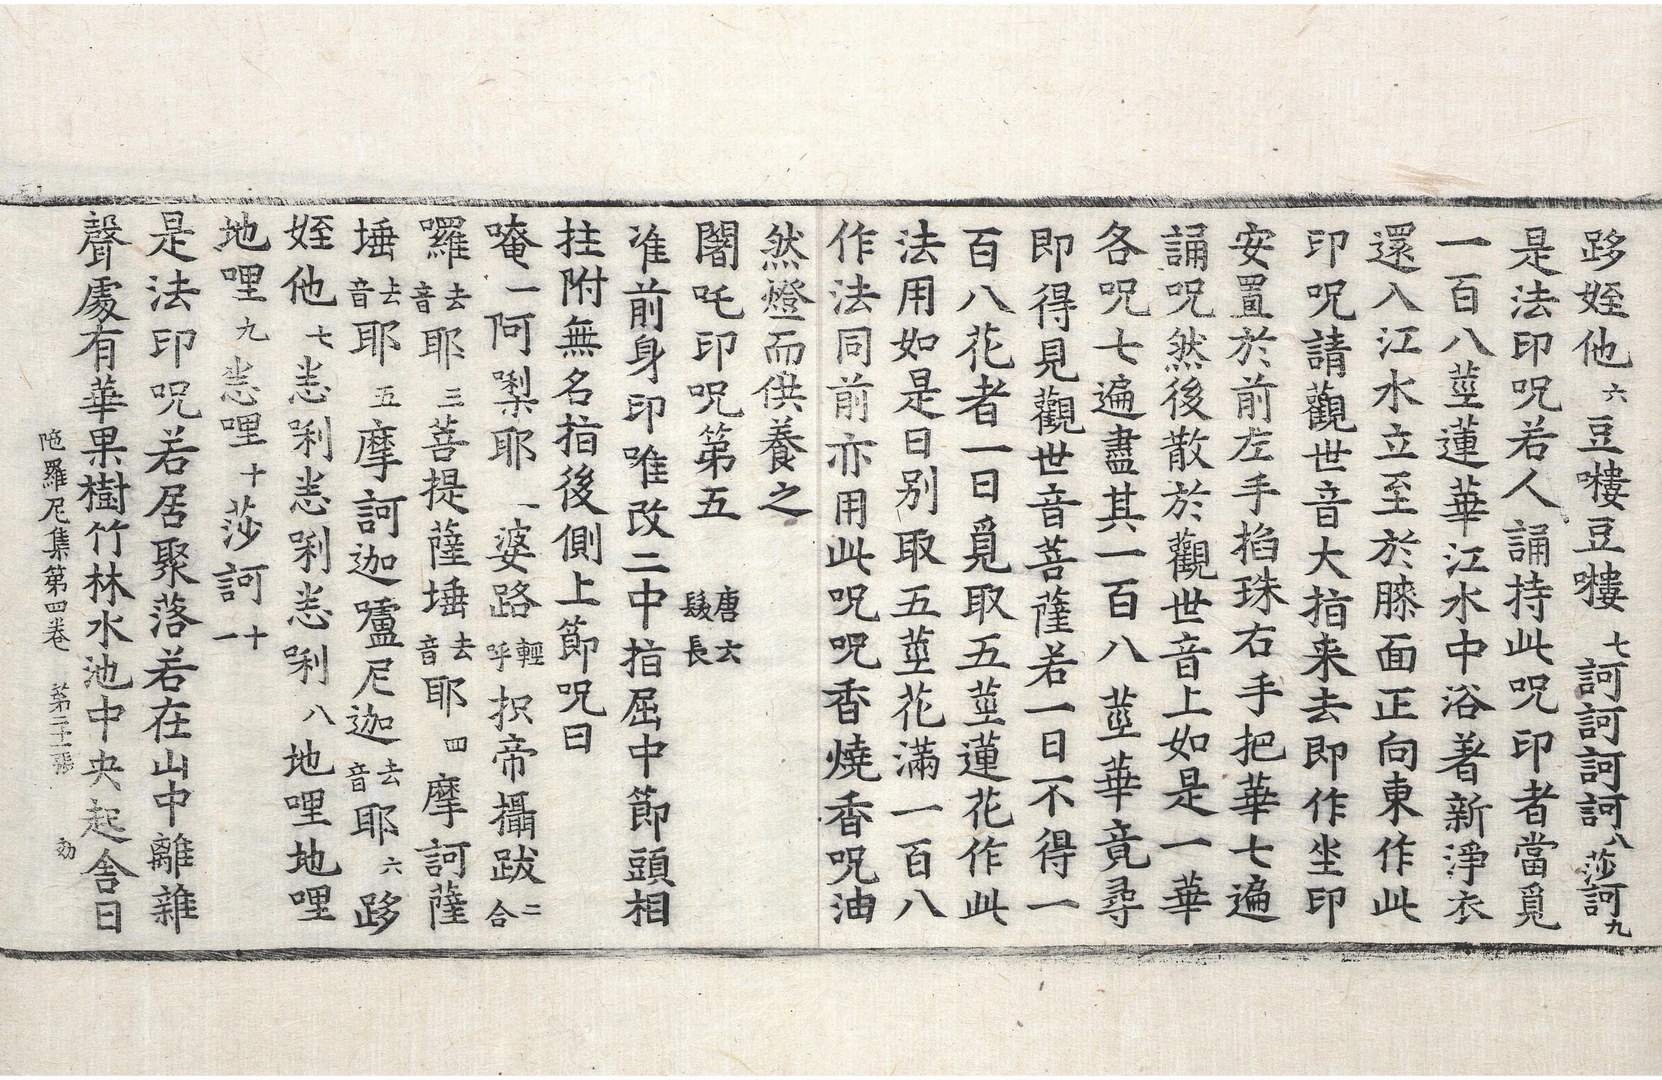 跢姪他六豆嘍豆嘍七訶訶訶訶八莎訶九
是法印呪若人誦持此呪印者當覓
一百八莖蓮華江水中浴著新淨衣
還入江水立至於膝面正向東作此
印呪請觀世音大指来去即作坐印
安置於前左手掐珠右手把華七遍
誦呪然後散於觀世音上如是一華
各呪七遍盡其一百八莖華竟尋
即得見觀世音菩薩若一日不得一
百八花者一日覓取五莖蓮花作此
法用如是日別取五莖花滿一百八
作法同前亦用此呪呪香燒香呪油
然燈而供養之
闍吒印呪第五唐云髮長
准前身印唯改二中指屈中節頭相
拄附無名指後側上節呪曰
唵一阿唎耶一婆路輕呼抧帝攝跋二合
囉去音耶三菩提薩埵去音耶四摩訶薩
埵去音耶五摩訶迦嚧尼迦去音耶六跢
姪他七恙唎恙唎恙唎八地哩地哩
地哩九恙哩十莎訶十一
是法印呪若居聚落若在山中離雜
聲處有華果樹竹林水池中央起舍日
陁羅尼集第四卷 第二十張 効